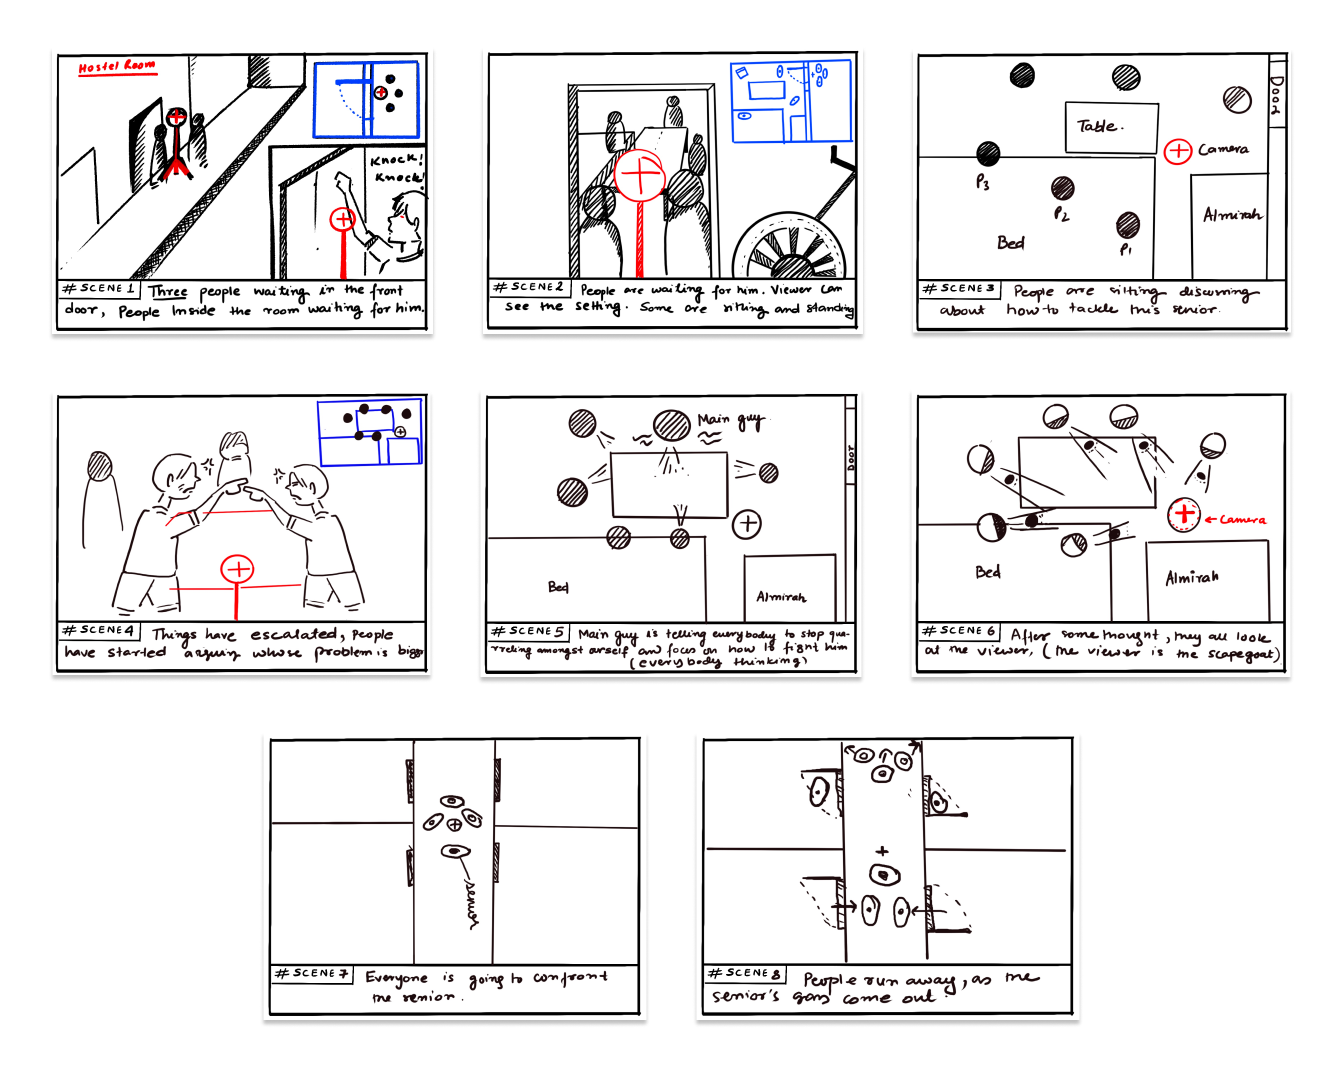 Hostel Room
Knock!
Knock!
# SCENE 1 Three people waiting in the front
door, People Inside the room waiting for him.
# SCENE 2 People are waiting for him. Viewer can
see the setting. Some are sitting and standing
Door
Table.
Camera
P3
P2
P1
Almirah
Bed
# SCENE 3 People are sitting discussing
about how to tackle this senior.
# SCENE 4 Things have escalated, People
have started arguing whose problem is bigger
Main guy
Door
Bed
Almirah
# SCENE 5 Main guy is telling everybody to stop qua-
rreling amongst ourself and focus on how to fight him
(everybody thinking)
Camera
Bed
Almirah
# SCENE 6 After some thought, they all look
at the viewer, (the viewer is the scapegoat)
senior
# SCENE 7 Everyone is going to confront
the senior.
# SCENE 8 People run away, as the
senior's gang come out.